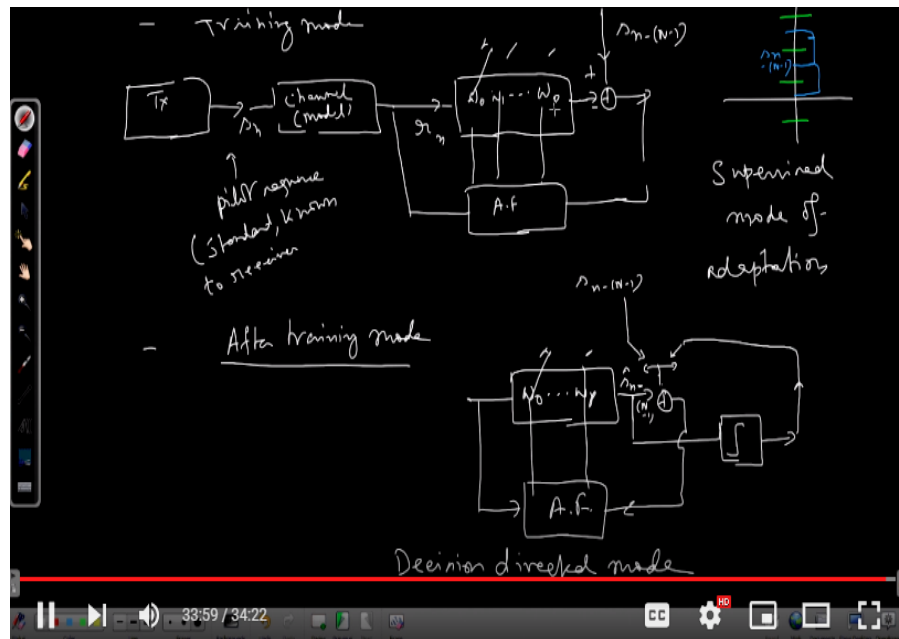 - Training mode
s_{n-(N-1)}
s_{n-(N-1)}
Tx
Channel
(model)
W_0 W_1 ... W_p
+
-
+
s_n
r_n
pilot sequence
(standard, known
to receiver
A.F
Supervised
mode of
adaptation
s_{n-(N-1)}
- After training mode
W_0 ... W_p
ŝ_{n-(N-1)}
+
+
A.F.
Decision directed mode
33:59 / 34:22
CC
HD